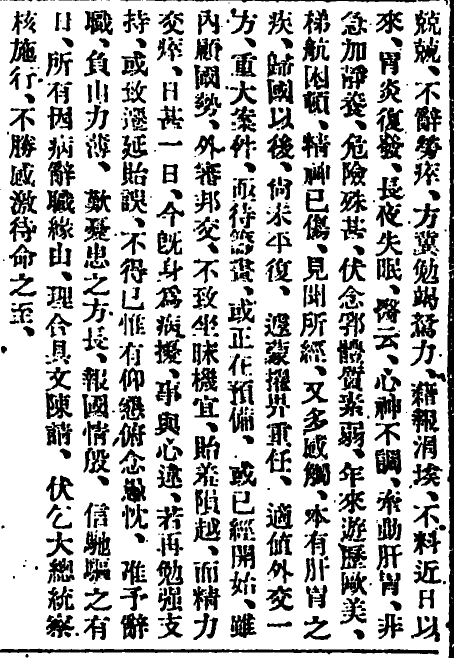 兢兢、不辭勞瘁、方冀勉竭駑力、藉報涓埃、不料近日以
來、胃炎復發、長夜失眠、醫云、心神不調、牽動肝胃、非
急加靜養、危險殊甚、伏念郛體質素弱、年來遊歷歐美、
梯航困頓、精神已傷、見聞所經、又多感觸、本有肝胃之
疾、歸國以後、尙未平復、遽蒙擢畀重任、適値外交一
方、重大案件、亟待籌畫、或正在預備、或已經開始、雖
內顧國勢、外審邦交、不致坐昧機宜、貽羞隕越、而精力
交瘁、日甚一日、今旣身爲病擾、事與心違、若再勉强支
持、或致遷延貽誤、不得已惟有仰懇俯念愚忱、准予辭
職、負山力薄、歎憂患之方長、報國情殷、信馳驅之有
日、所有因病辭職緣由、理合具文陳請、伏乞大總統察
核施行、不勝感激待命之至、